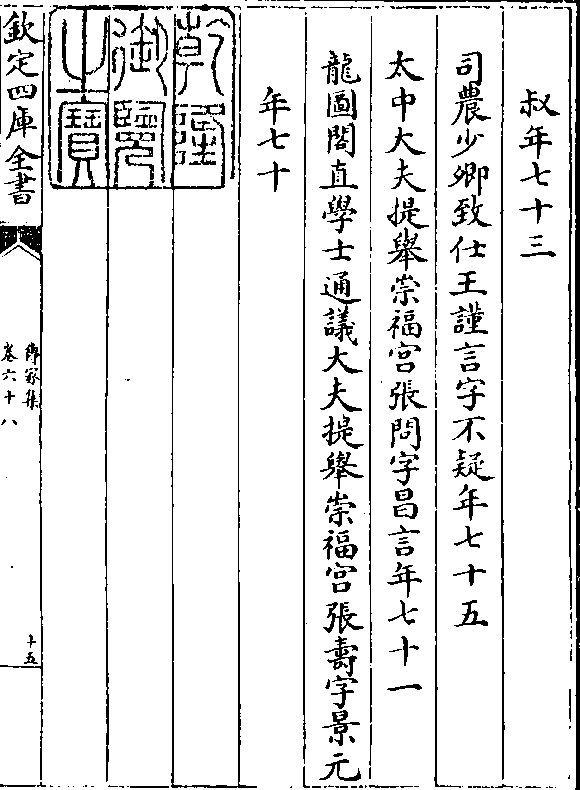 叔年七十三
司農少卿致仕王謹言字不疑年七十五
太中大夫提舉崇福宮張問字昌言年七十一
龍圖閣直學士通議大夫提舉崇福宮張壽字景元
年七十
乾隆
御覽
之寶
欽定四庫全書
傳家集
卷六十八
十五